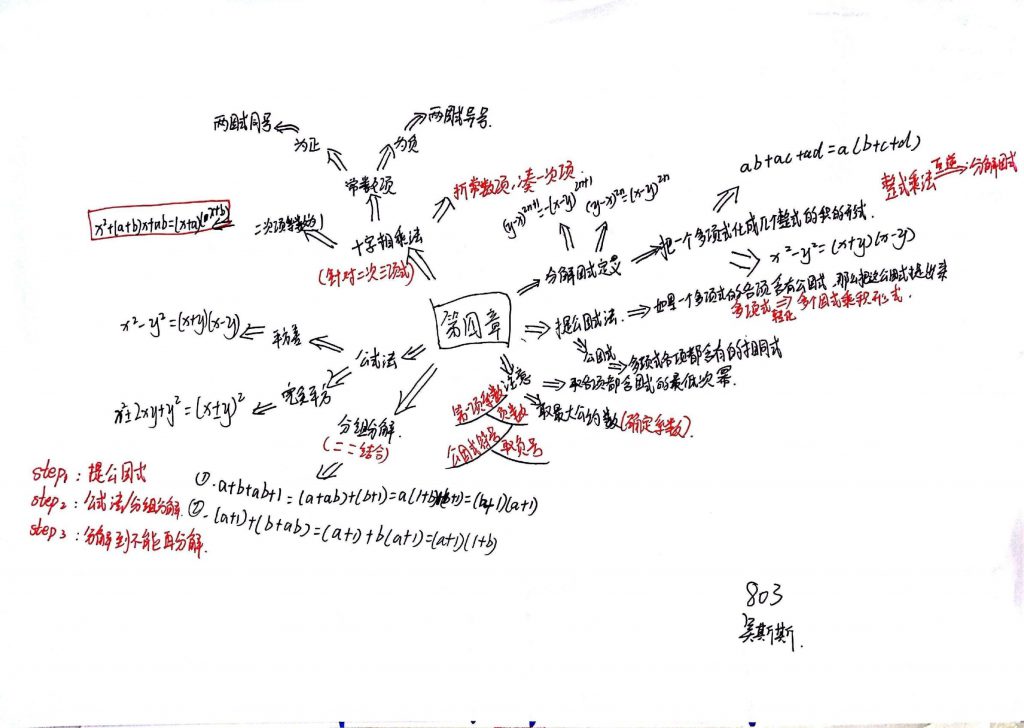 两因式同号
两因式异号.
为正
为负
常数项
拆常数项,凑一次项.
(y-x)²ⁿ⁺¹=-(x-y)²ⁿ⁺¹
(y-x)²ⁿ=(x-y)²ⁿ
ab+ac+ad=a(b+c+d)
整式乘法 互逆 分解因式
x²+(a+b)x+ab=(x+a)(x+b)
二次项系数为1
十字相乘法
(针对二次三项式)
分解因式定义
把一个多项式化成几个整式的积的形式.
x²-y²=(x+y)(x-y)
第四章
提公因式法.
如果一个多项式的各项含有公因式,那么把这公因式提出来
多项式 转化 多个因式乘积形式.
x²-y²=(x+y)(x-y)
平方差
公式法
完全平方
x²±2xy+y²=(x±y)²
公因式
多项式各项都含有的相同式
注意
取各项都含因式的最低次幂.
取最大公约数(确定系数).
第一项系数
负数
公因式符号
取负号
分组分解.
(二二结合)
step1:提公因式
step2:公式法/分组分解.
step3:分解到不能再分解.
①.a+b+ab+1=(a+ab)+(b+1)=a(1+b)+(b+1)=(a+1)
②.(a+1)+(b+ab)=(a+1)+b(a+1)=(a+1)(1+b)
803
吴斯斯.